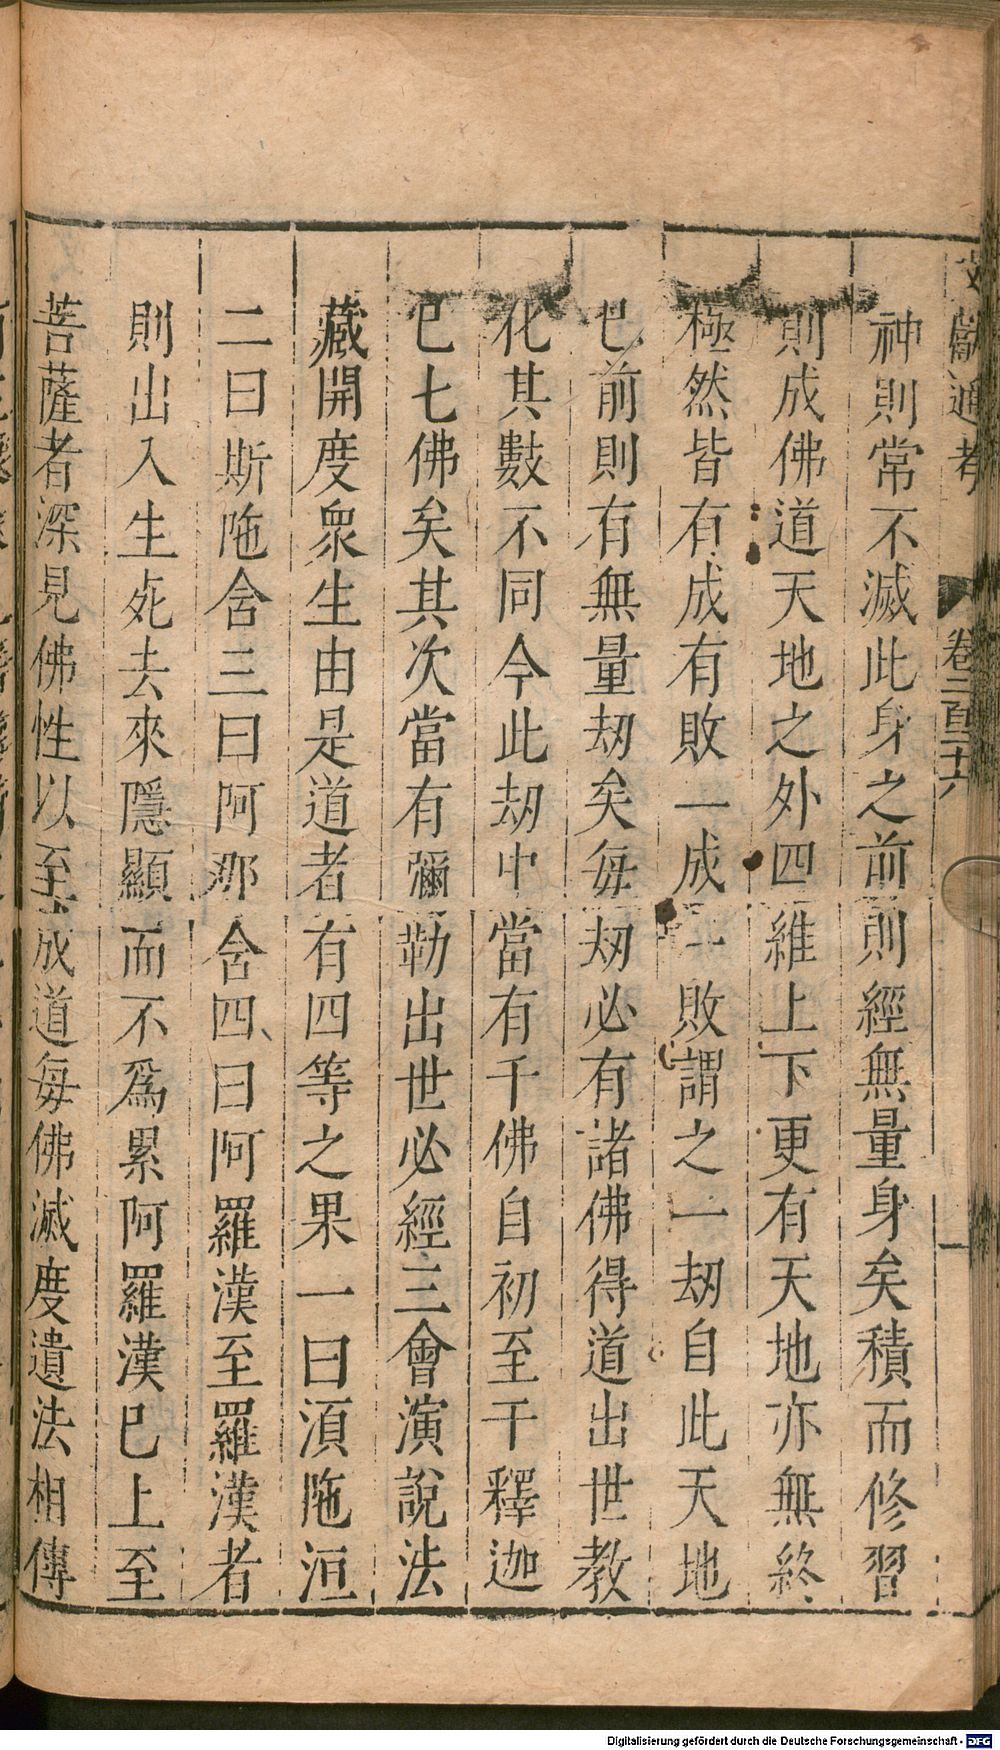 文獻通考 卷二百二十六 一
神則常不滅此身之前則經無量身矣積而修習
則成佛道天地之外四維上下更有天地亦無終
極然皆有成有敗一成一敗謂之一劫自此天地
已前則有無量劫矣每劫必有諸佛得道出世教
化其數不同今此劫中當有千佛自初至于釋迦
已七佛矣其次當有彌勒出世必經三會演說法
藏開度衆生由是道者有四等之果一曰湏陁洹
二曰斯陁含三曰阿那含四曰阿羅漢至羅漢者
則出入生死去來隱顯而不爲累阿羅漢已上至
菩薩者深見佛性以至成道每佛滅度遺法相傳
Digitalisierung gefördert durch die Deutsche Forschungsgemeinschaft - DFG